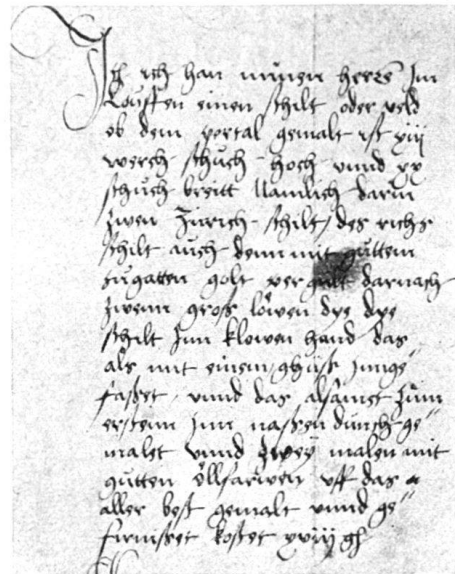 Jtem ich han minen herrē Jm
Kouffen einen schilt oder veld
ob dem portal gemalt ist xiij
werch schůch hoch vnnd xx
schůch breitt Namlich darin
zwen Zürich schilt / des richs
schilt auch denn mit guttem
tugatten golt vergült darnach
zwenn gros löwen dye dye
schilt Jnn klowen hand das
als mit einem ghüß Jnnge=
faßet / vnnd das alsamet zum
erstenn Jnn naßen durch ge=
malet vnnd zwey malen mit
gutten öllfarwen vff das
aller best gemalt vnnd ge=
firnißet kostet xviij gl